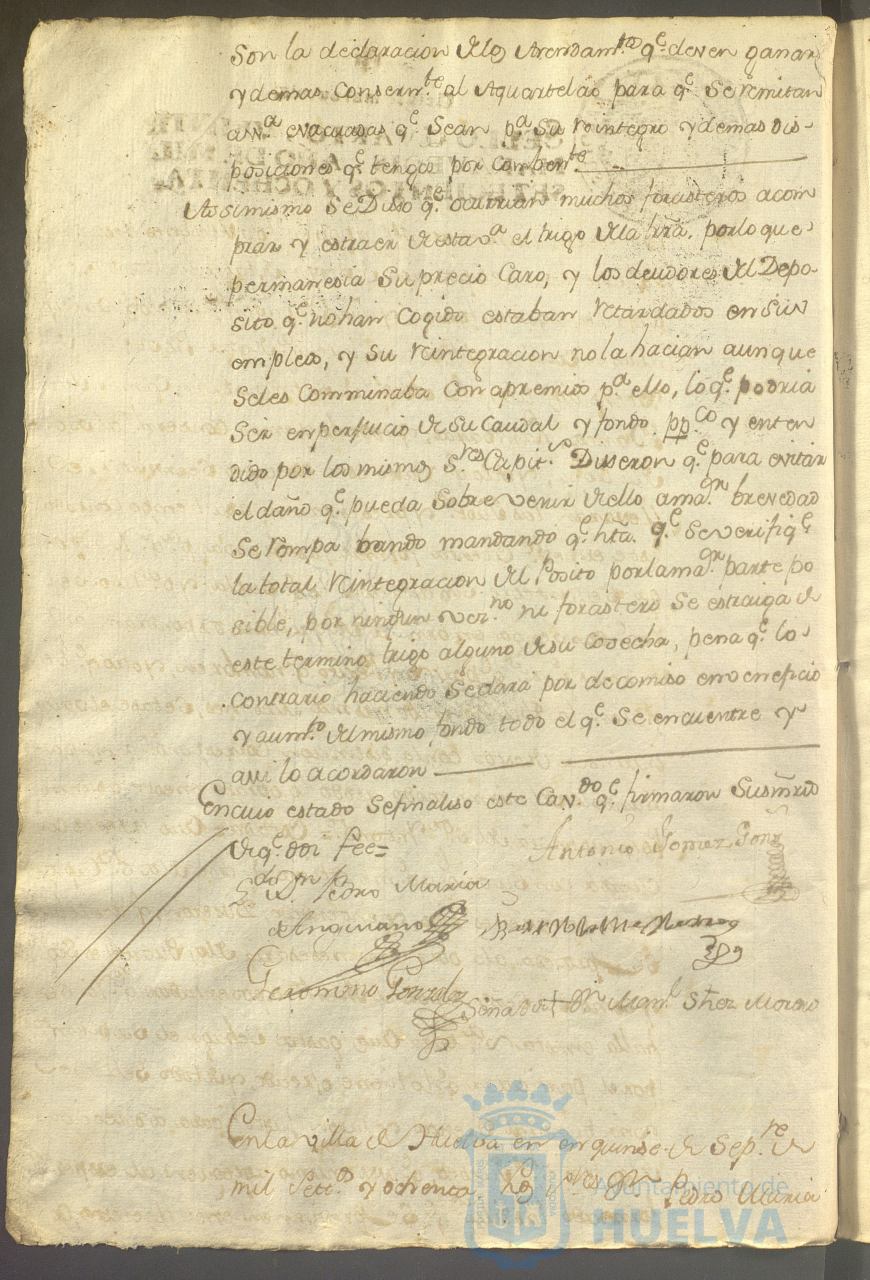 Son la declaracion de los Arendam.tos q.e deven ganar
y demas consern.te al Aquartelao para q.e Se remitan
a N.a evacuadas q.e Sean p.a Su reintegro y demas dis-
posiciones q.e tengo por comben.te
Assimismo Se Disso q.e ocurrian muchos forasteros acom
prar y estraer de esta v.a el trigo de la trra. por lo que
permanesia Su precio Caro, y los deudores del Depo-
sito q.e no han Cogido estaban retardados en Sus
empleos, y Su reintegracion no la hacian aunque
Seles Comminaba Con apremios p.a ello, lo q.e podria
Ser en perjuicio de Su Caudal y fondo pp.co y enten
dido por los mismos S.res Capit.s Disseron q.e para evitar
el daño q.e pueda Sobrevenir de ello a ma.or brevedad
Se rompa bando mandando q.e hta. q.e Se verifiq.e
la total reintegracion del Posito por la ma.or parte po
sible, por ningun vez.no ni forastero Se estraiga de
este termino trigo alguno de su Cosecha, pena q.e lo
contrario haciendo Se dara por decomiso en veneficio
y aum.to del mismo fondo todo el q.e Se encuentre y
assi lo acordaron
En cuio estado Se finaliso este Cav.do q.e firmaron Sus mrds
de q.e doi fee=
Antonio Gomez Gonz
L.do D.n Pedro Maria
de Anguiano
Geronimo Gonzalez
Señal de + D.n Man.l Schez Moreno
En la villa de Huelva en en quinse de Sep.re de
mil Sett.s y ochenta los S.res D.n Pedro Maria
Ayuntamiento de
HUELVA